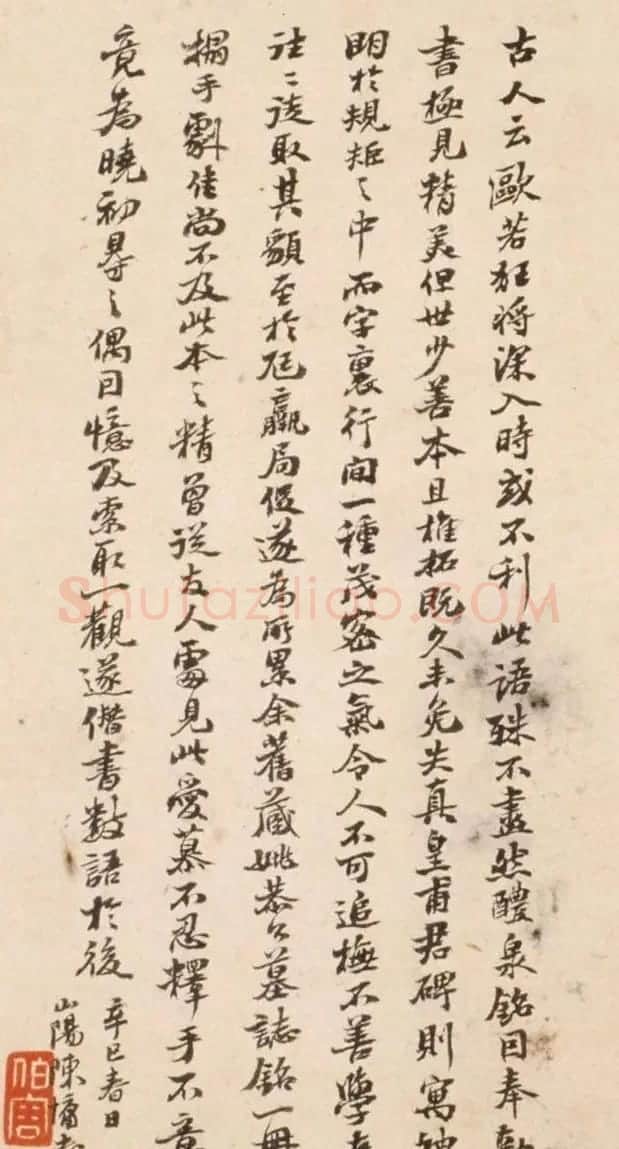 古人云歐若狂將深入時或不利此語殊不盡然醴泉銘因奉勅
書極見精美但世少善本且椎拓既久未免失真皇甫君碑則寓
明於規矩之中而字裏行間一種茂密之氣令人不可追橅不善學
往〻徒取其額至於尫羸局促遂為所累余舊藏姚恭公墓誌銘一冊
搨手劉佳尚不及此本之精曾從友人處見此愛慕不忍釋手不意
竟為曉初尋之偶因憶及索取一觀遂僭書數語於後
辛巳春日
山陽陳
伯
Shufaziliao.COM